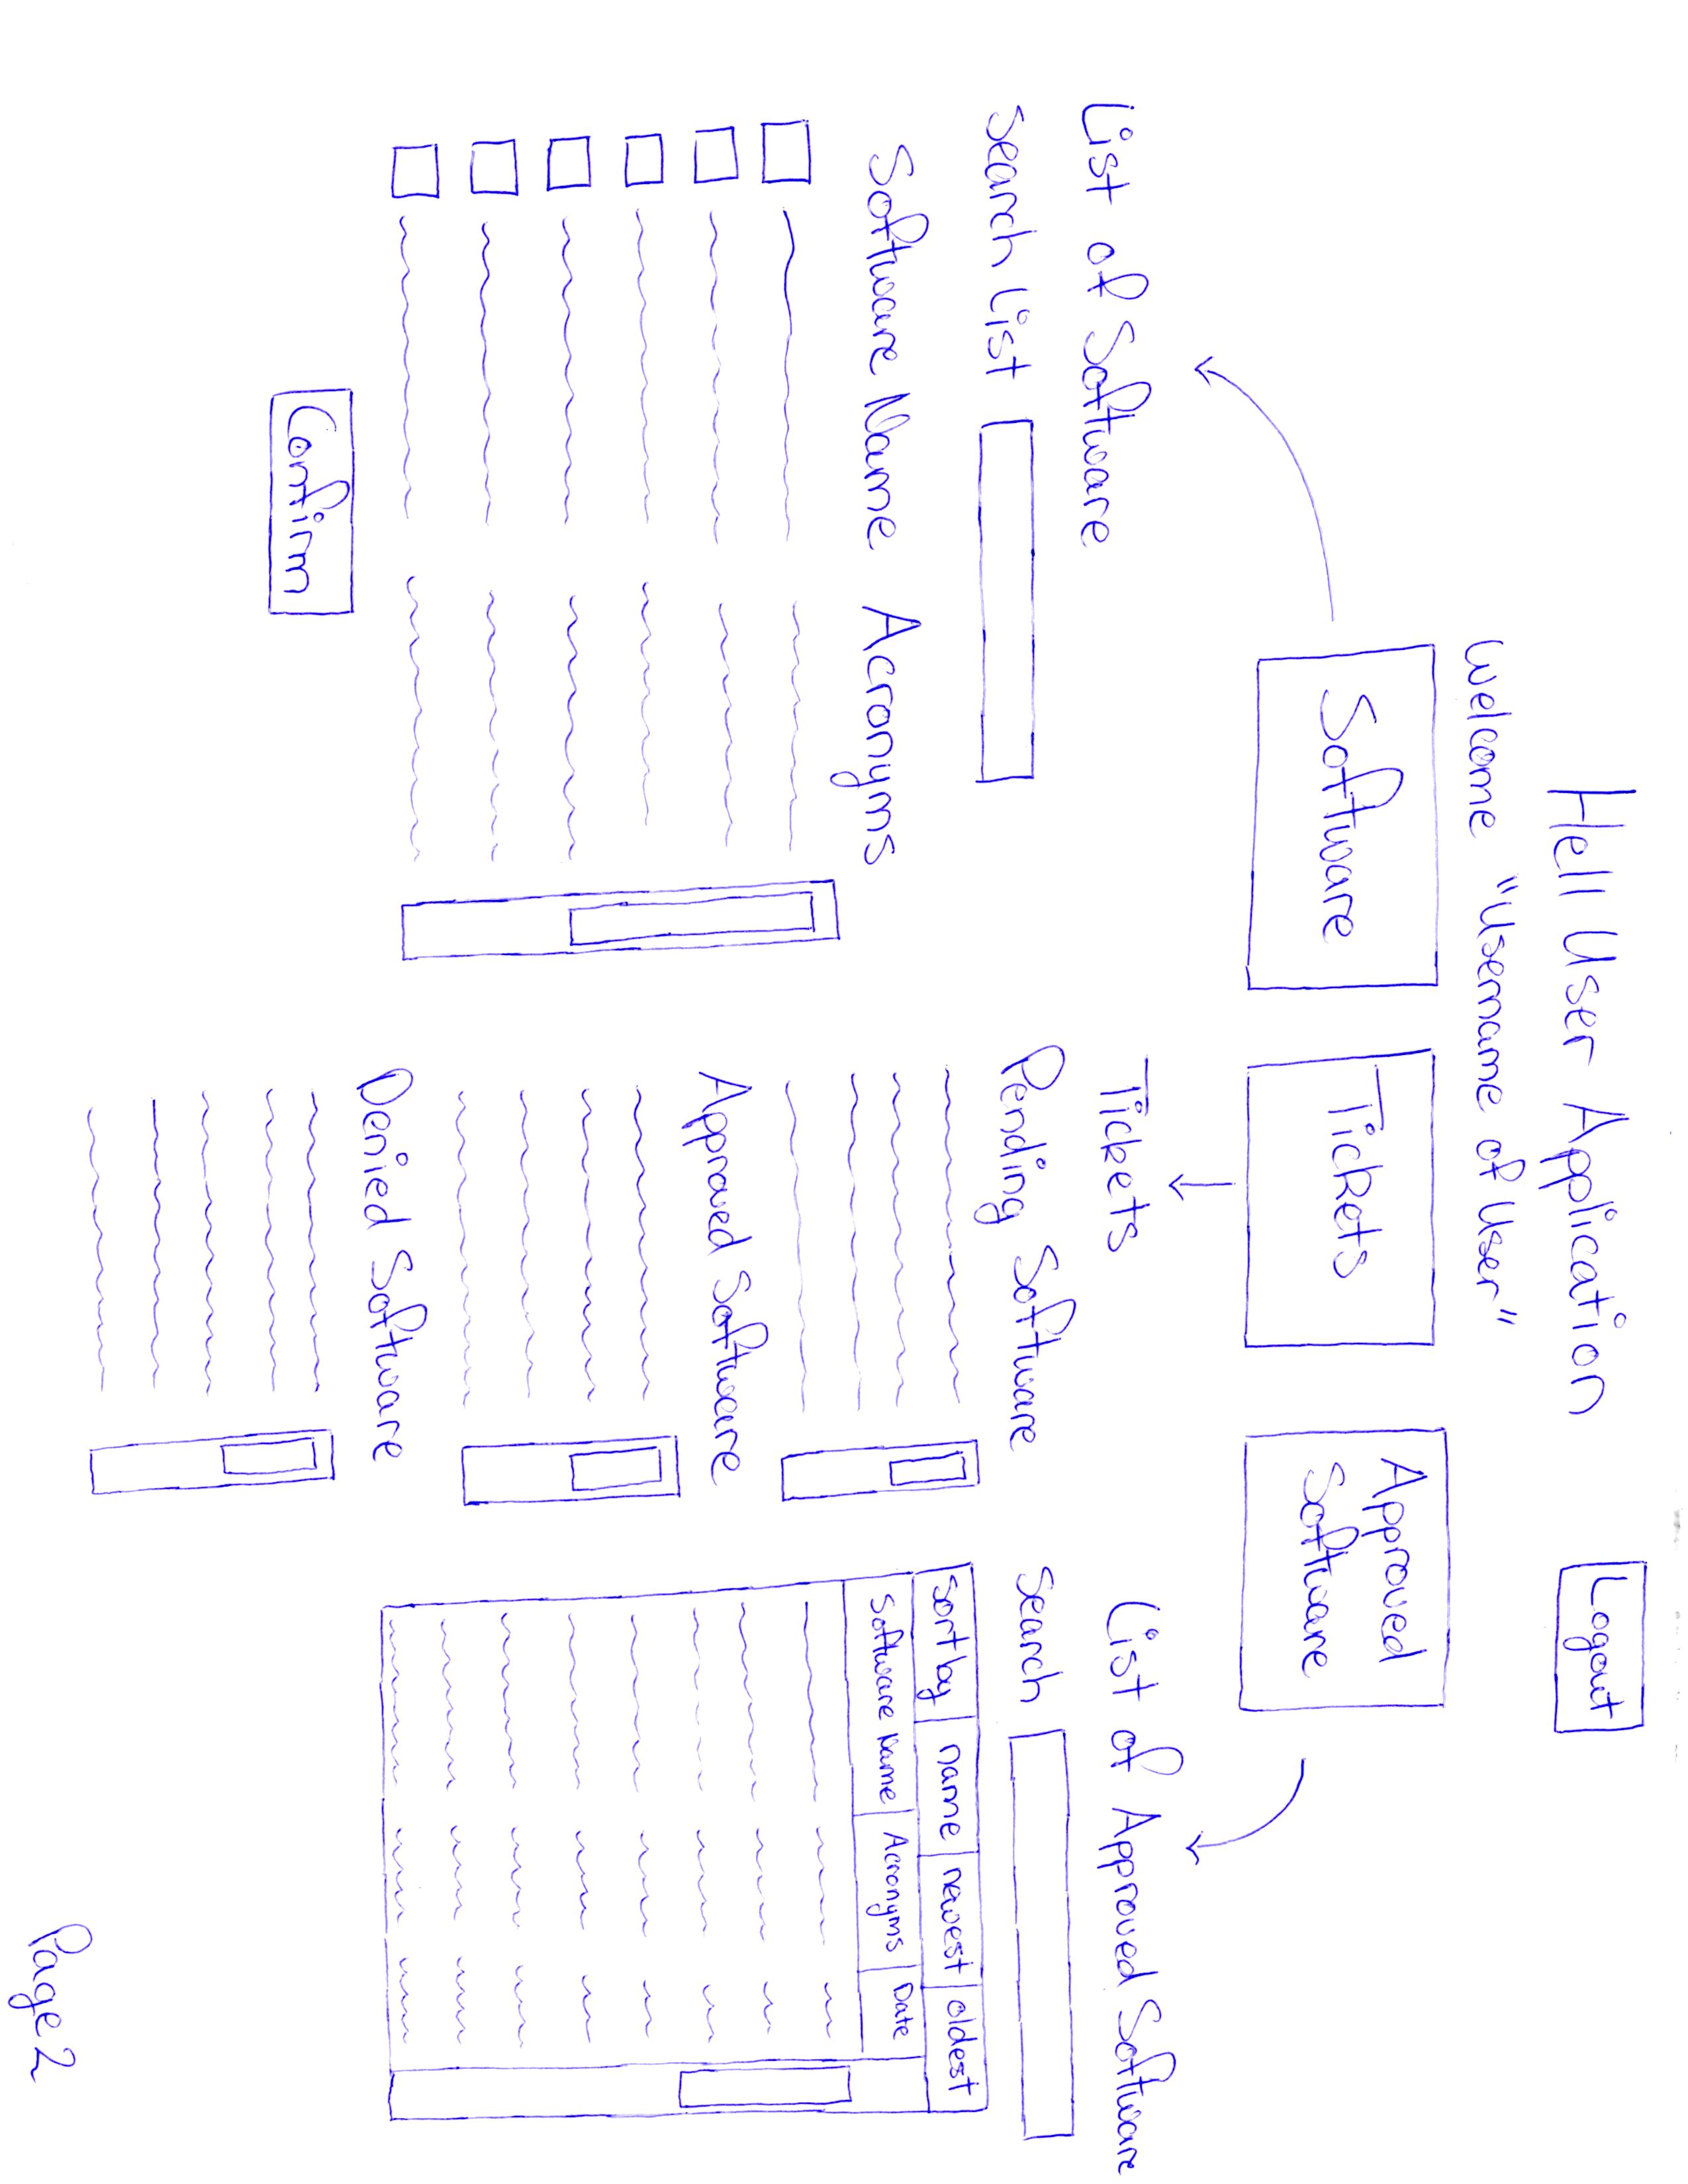 Hell User Application
Logout
Welcome "Username of User"
Software
Tickets
Approved
Software
List of Software
Search List
Software Name Acronyms
Confirm
Tickets
Pending Software
Approved Software
Denied Software
List of Approved Software
Search
Sort by name newest oldest
Software Name Acronyms Date
Page 2